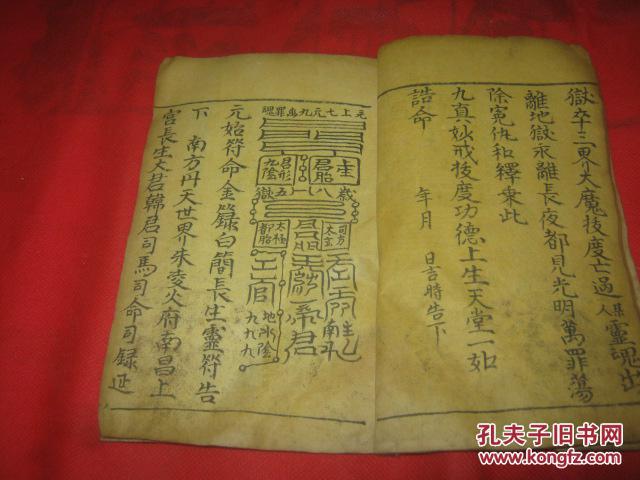 獄卒三界大魔拔度亡過某人靈魂出
離地獄永離長夜都見光明萬罪蕩
除冤仇和釋乘此
九真妙戒拔度功德上生天堂一如
誥命
年月 日吉時告下
君形
九陰
君胎
司方
太玄
太極
都胎
南斗
帝君
官
地水陰
九九九
元始符命金籙白簡長生靈符告
下 南方丹天世界朱陵火府南昌上
宮長生大君韓君司馬司命司錄延
孔夫子旧书网
www.kongfz.com